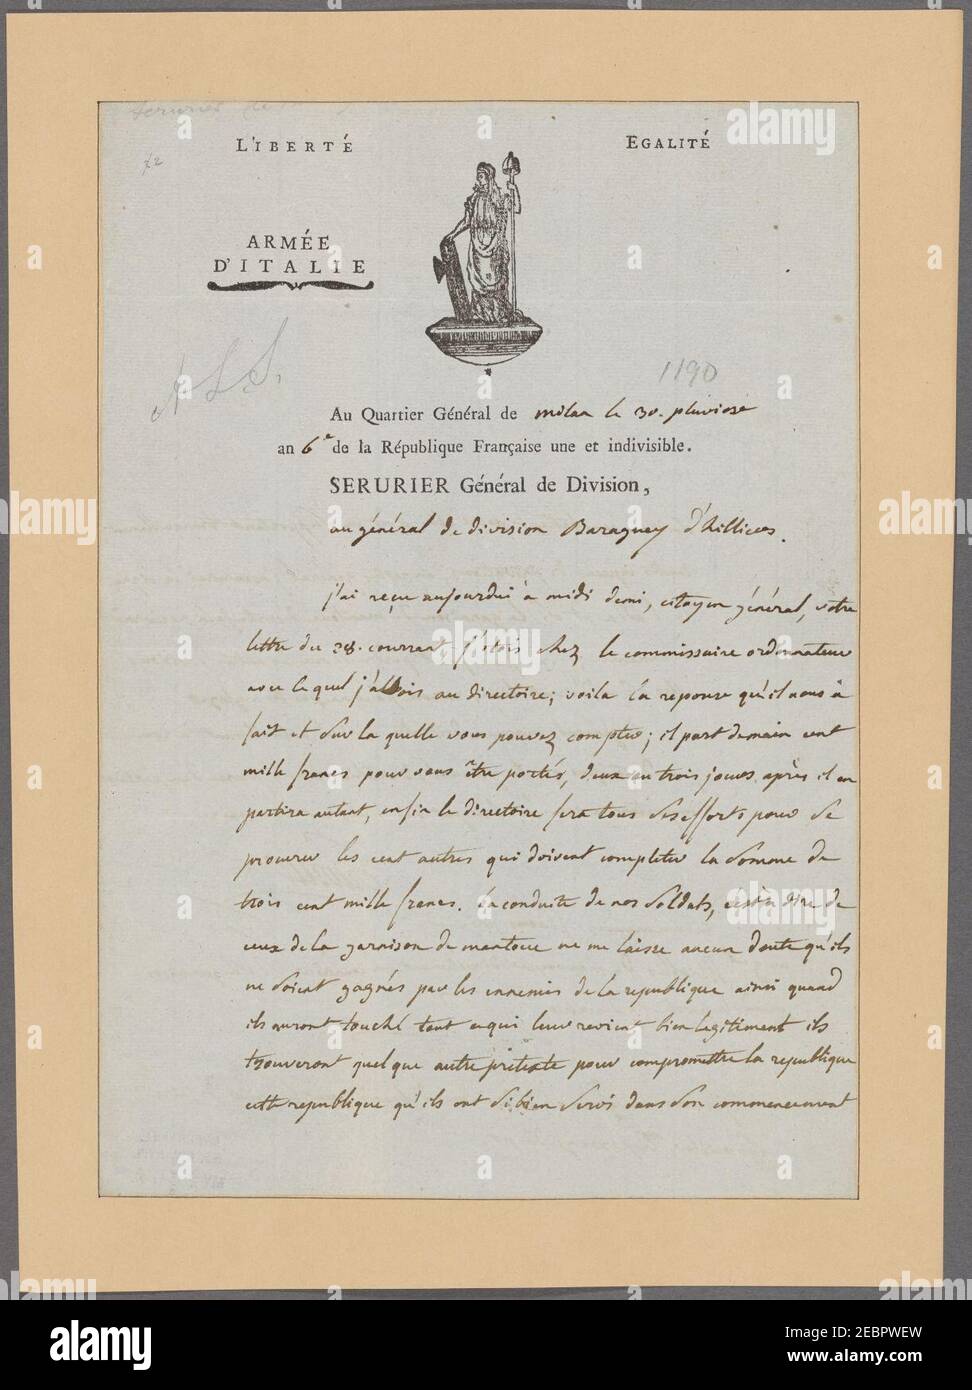 Serurier
72
L'IBERTÉ
EGALITÉ
ARMÉE
D'ITALIE
A L S.
1190
Au Quartier Général de milan le 30. pluviose
an 6e de la République Française une et indivisible.
SERURIER Général de Division,
au général de division Baraguey d'hilliers.
j'ai reçu aujourdui à midi demi, citoyen général, votre
lettre du 28. courrant j'étois chez le commissaire ordonnateur
avec le quel j'allois au directoire; voila la reponse qu'il nous à
fait et sur la quelle vous pouvez compter; il part demain cent
mille francs pour vous être portés, deux ou trois jours après il en
partira autant, enfin le directoire fera tous ses efforts pour se
procurer les cent autres qui doivent completter la somme de
trois cent mille francs. la conduite de nos soldats, c'est à dire de
ceux de la garnison de mantoue ne me laisse aucun doute qu'ils
ne soient gagnés par les ennemis de la republique ainsi quand
ils auront touché tout ce qui leur revient bien legitiment ils
trouveront quelque autre pretexte pour compromettre la republique
cette republique qu'ils ont si bien servi dans son commencement
alamy
Image ID: 2EBPWEW
www.alamy.com